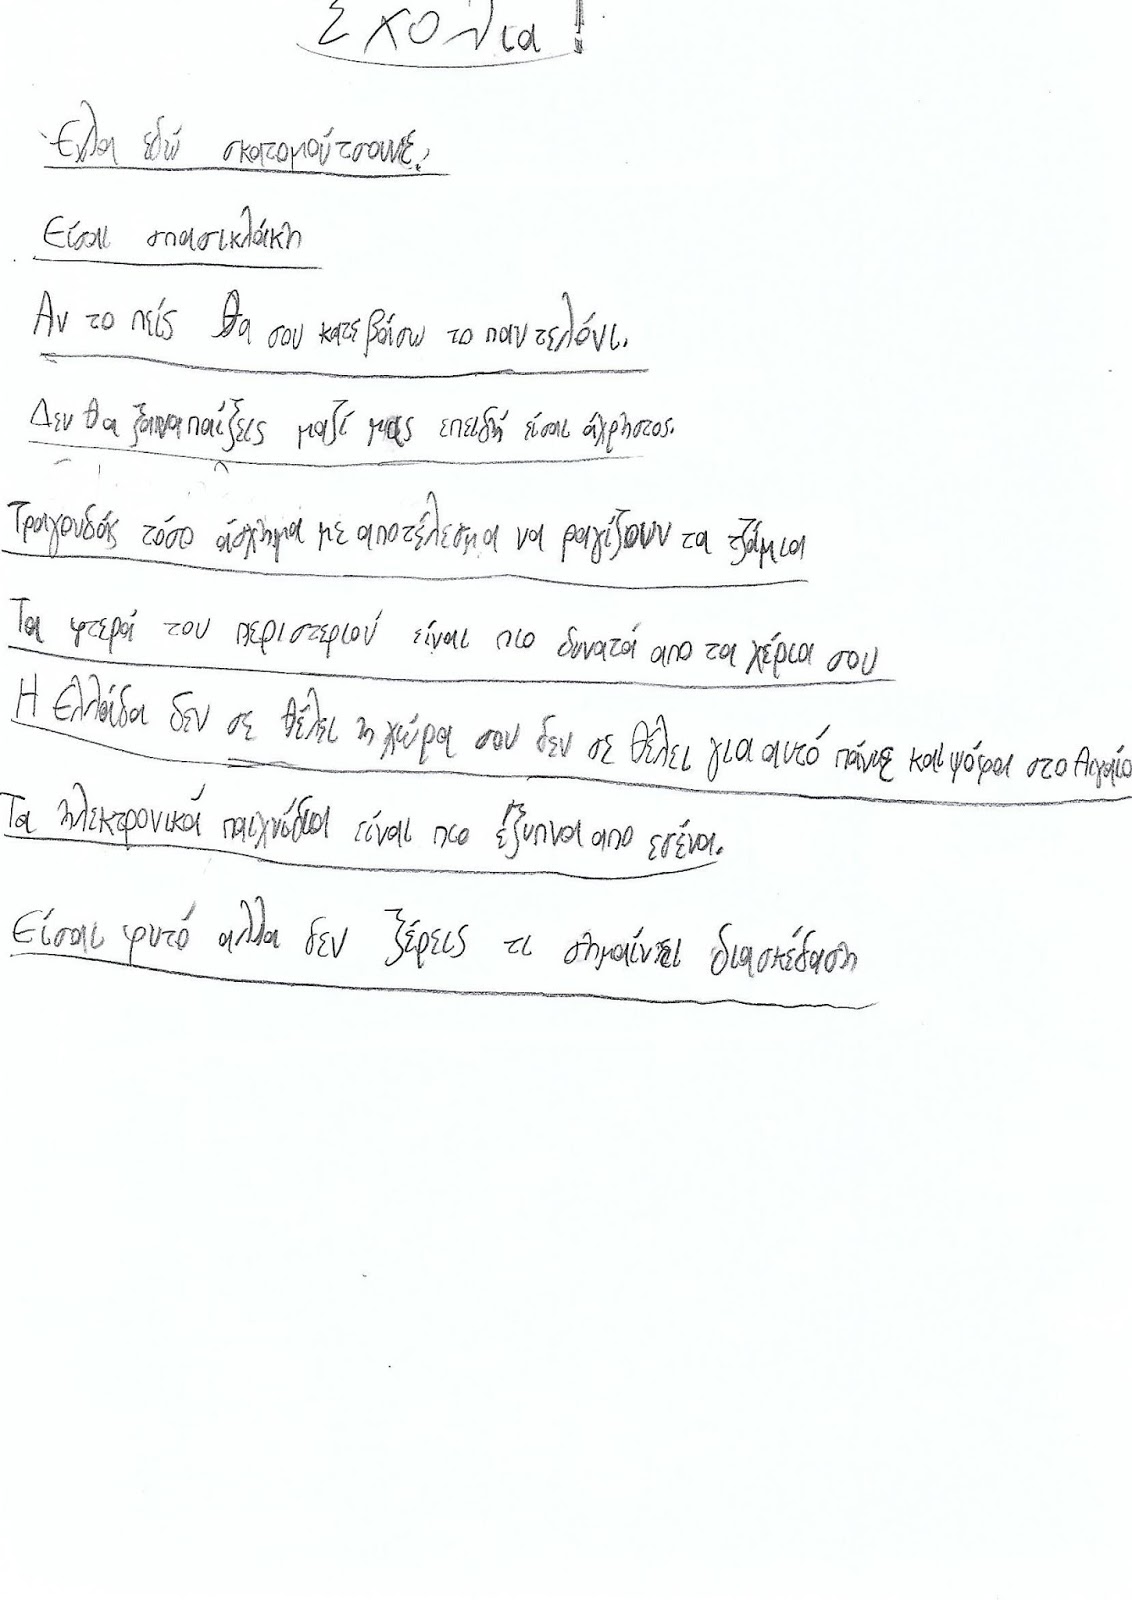 Σχόλια!
Έλα εδώ σκατομούτσουνε!
Είσαι σπασικλάκη
Αν το πείς θα σου κατεβάσω το παντελόνι.
Δεν θα ξαναπαίξεις μαζί μας επειδή είσαι άχρηστος.
Τραγουδάς τόσο άσχημα με αποτέλεσμα να ραγίζουν τα τζάμια
Τα φτερά του περιστεριού είναι πιο δυνατά απο τα χέρια σου
Η Ελλάδα δεν σε θέλει η χώρα σου δεν σε θέλει για αυτό πάνε και ψόφα στο Αιγαίο
Τα ηλεκτρονικά παιχνίδια είναι πιο έξυπνα απο εσένα.
Είσαι φυτό αλλα δεν ξέρεις τι σημαίνει διασκέδαση